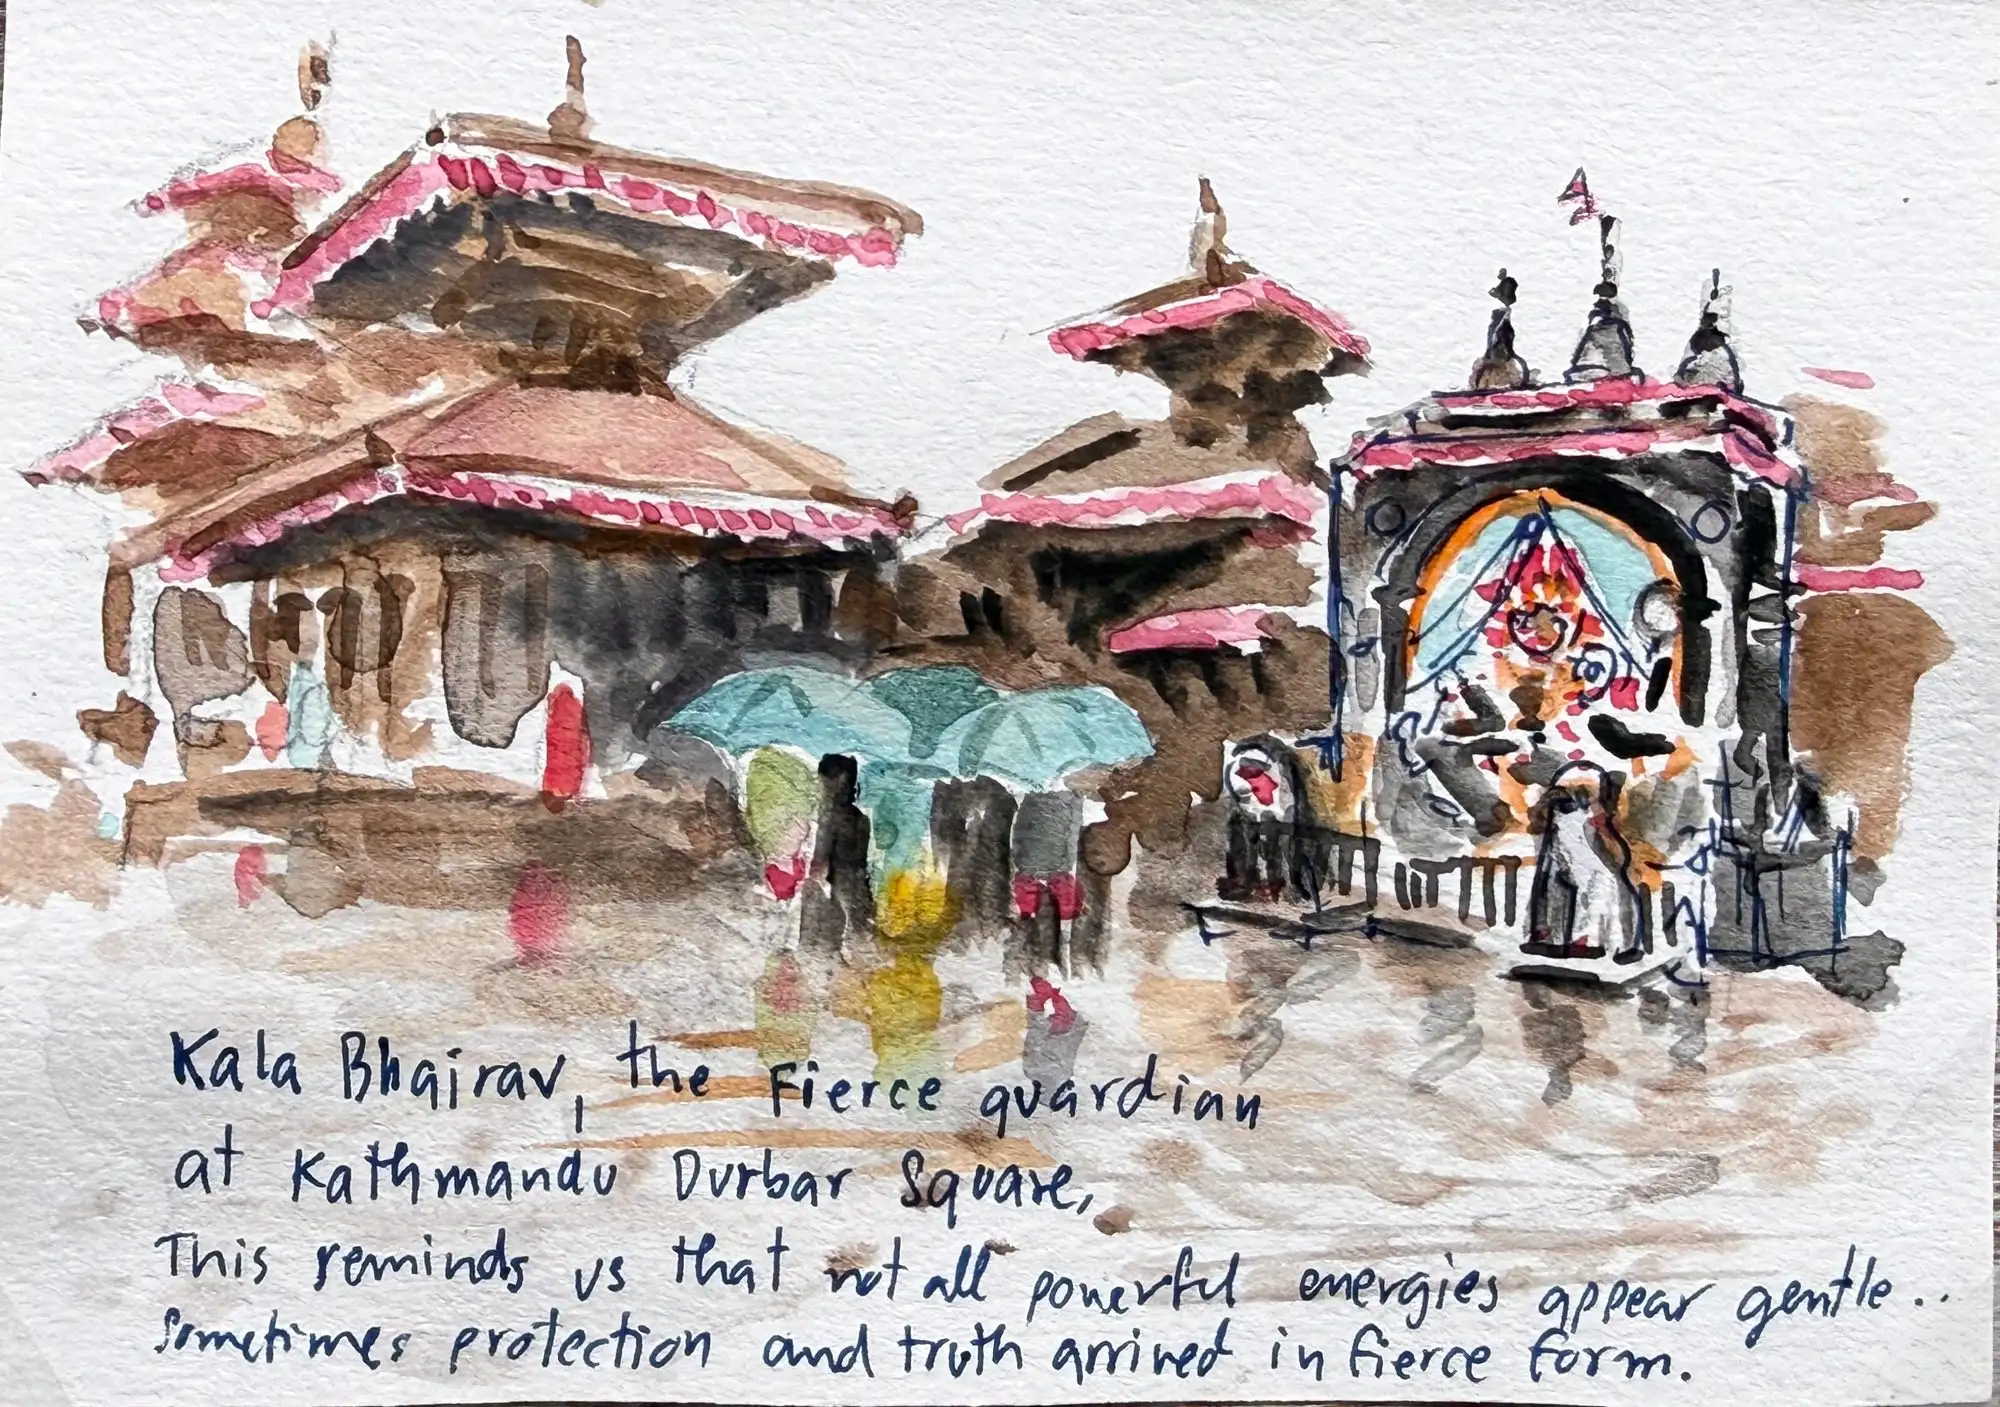 Kala Bhairav, the Fierce guardian
at Kathmandu Durbar Square,
This reminds us that not all powerful energies appear gentle..
Sometimes protection and truth arrived in fierce form.